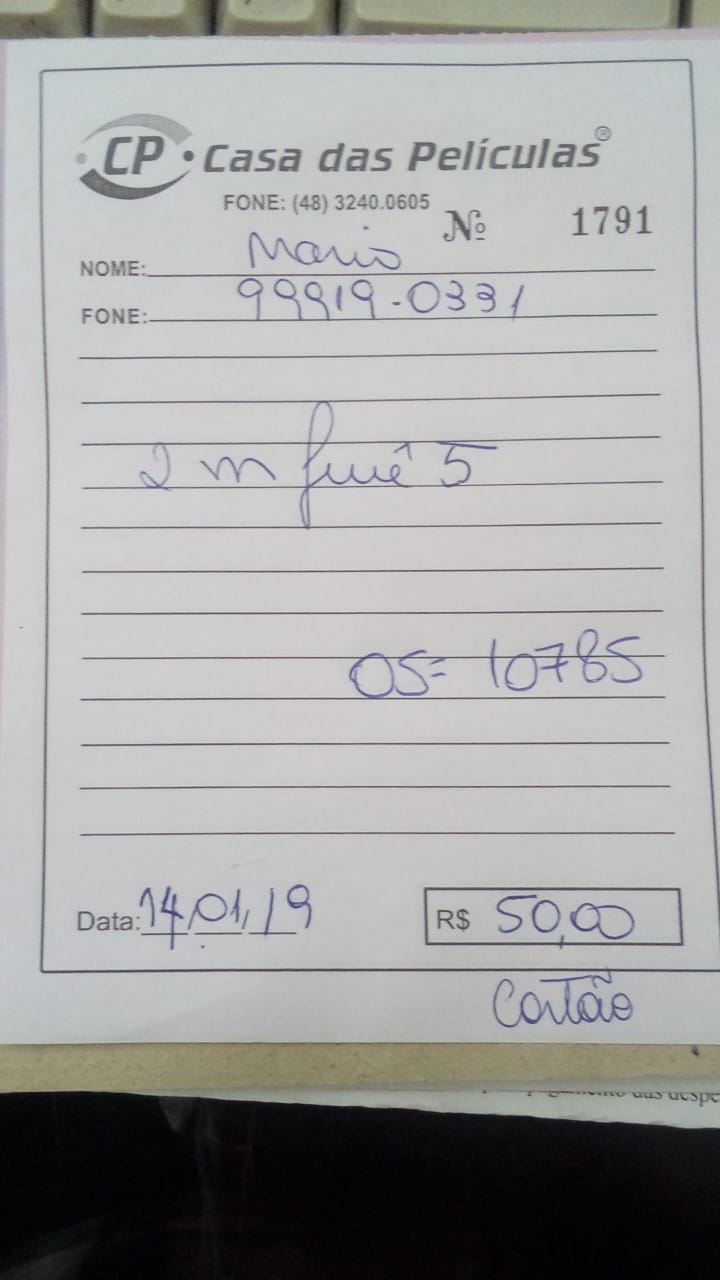 CP • Casa das Películas®
FONE: (48) 3240.0605
Nº 1791
NOME: Mario
FONE: 99919-0331
2 m fumê 5
OS= 10785
Data: 14/01/19
R$ 50,00
Cartão
das despe